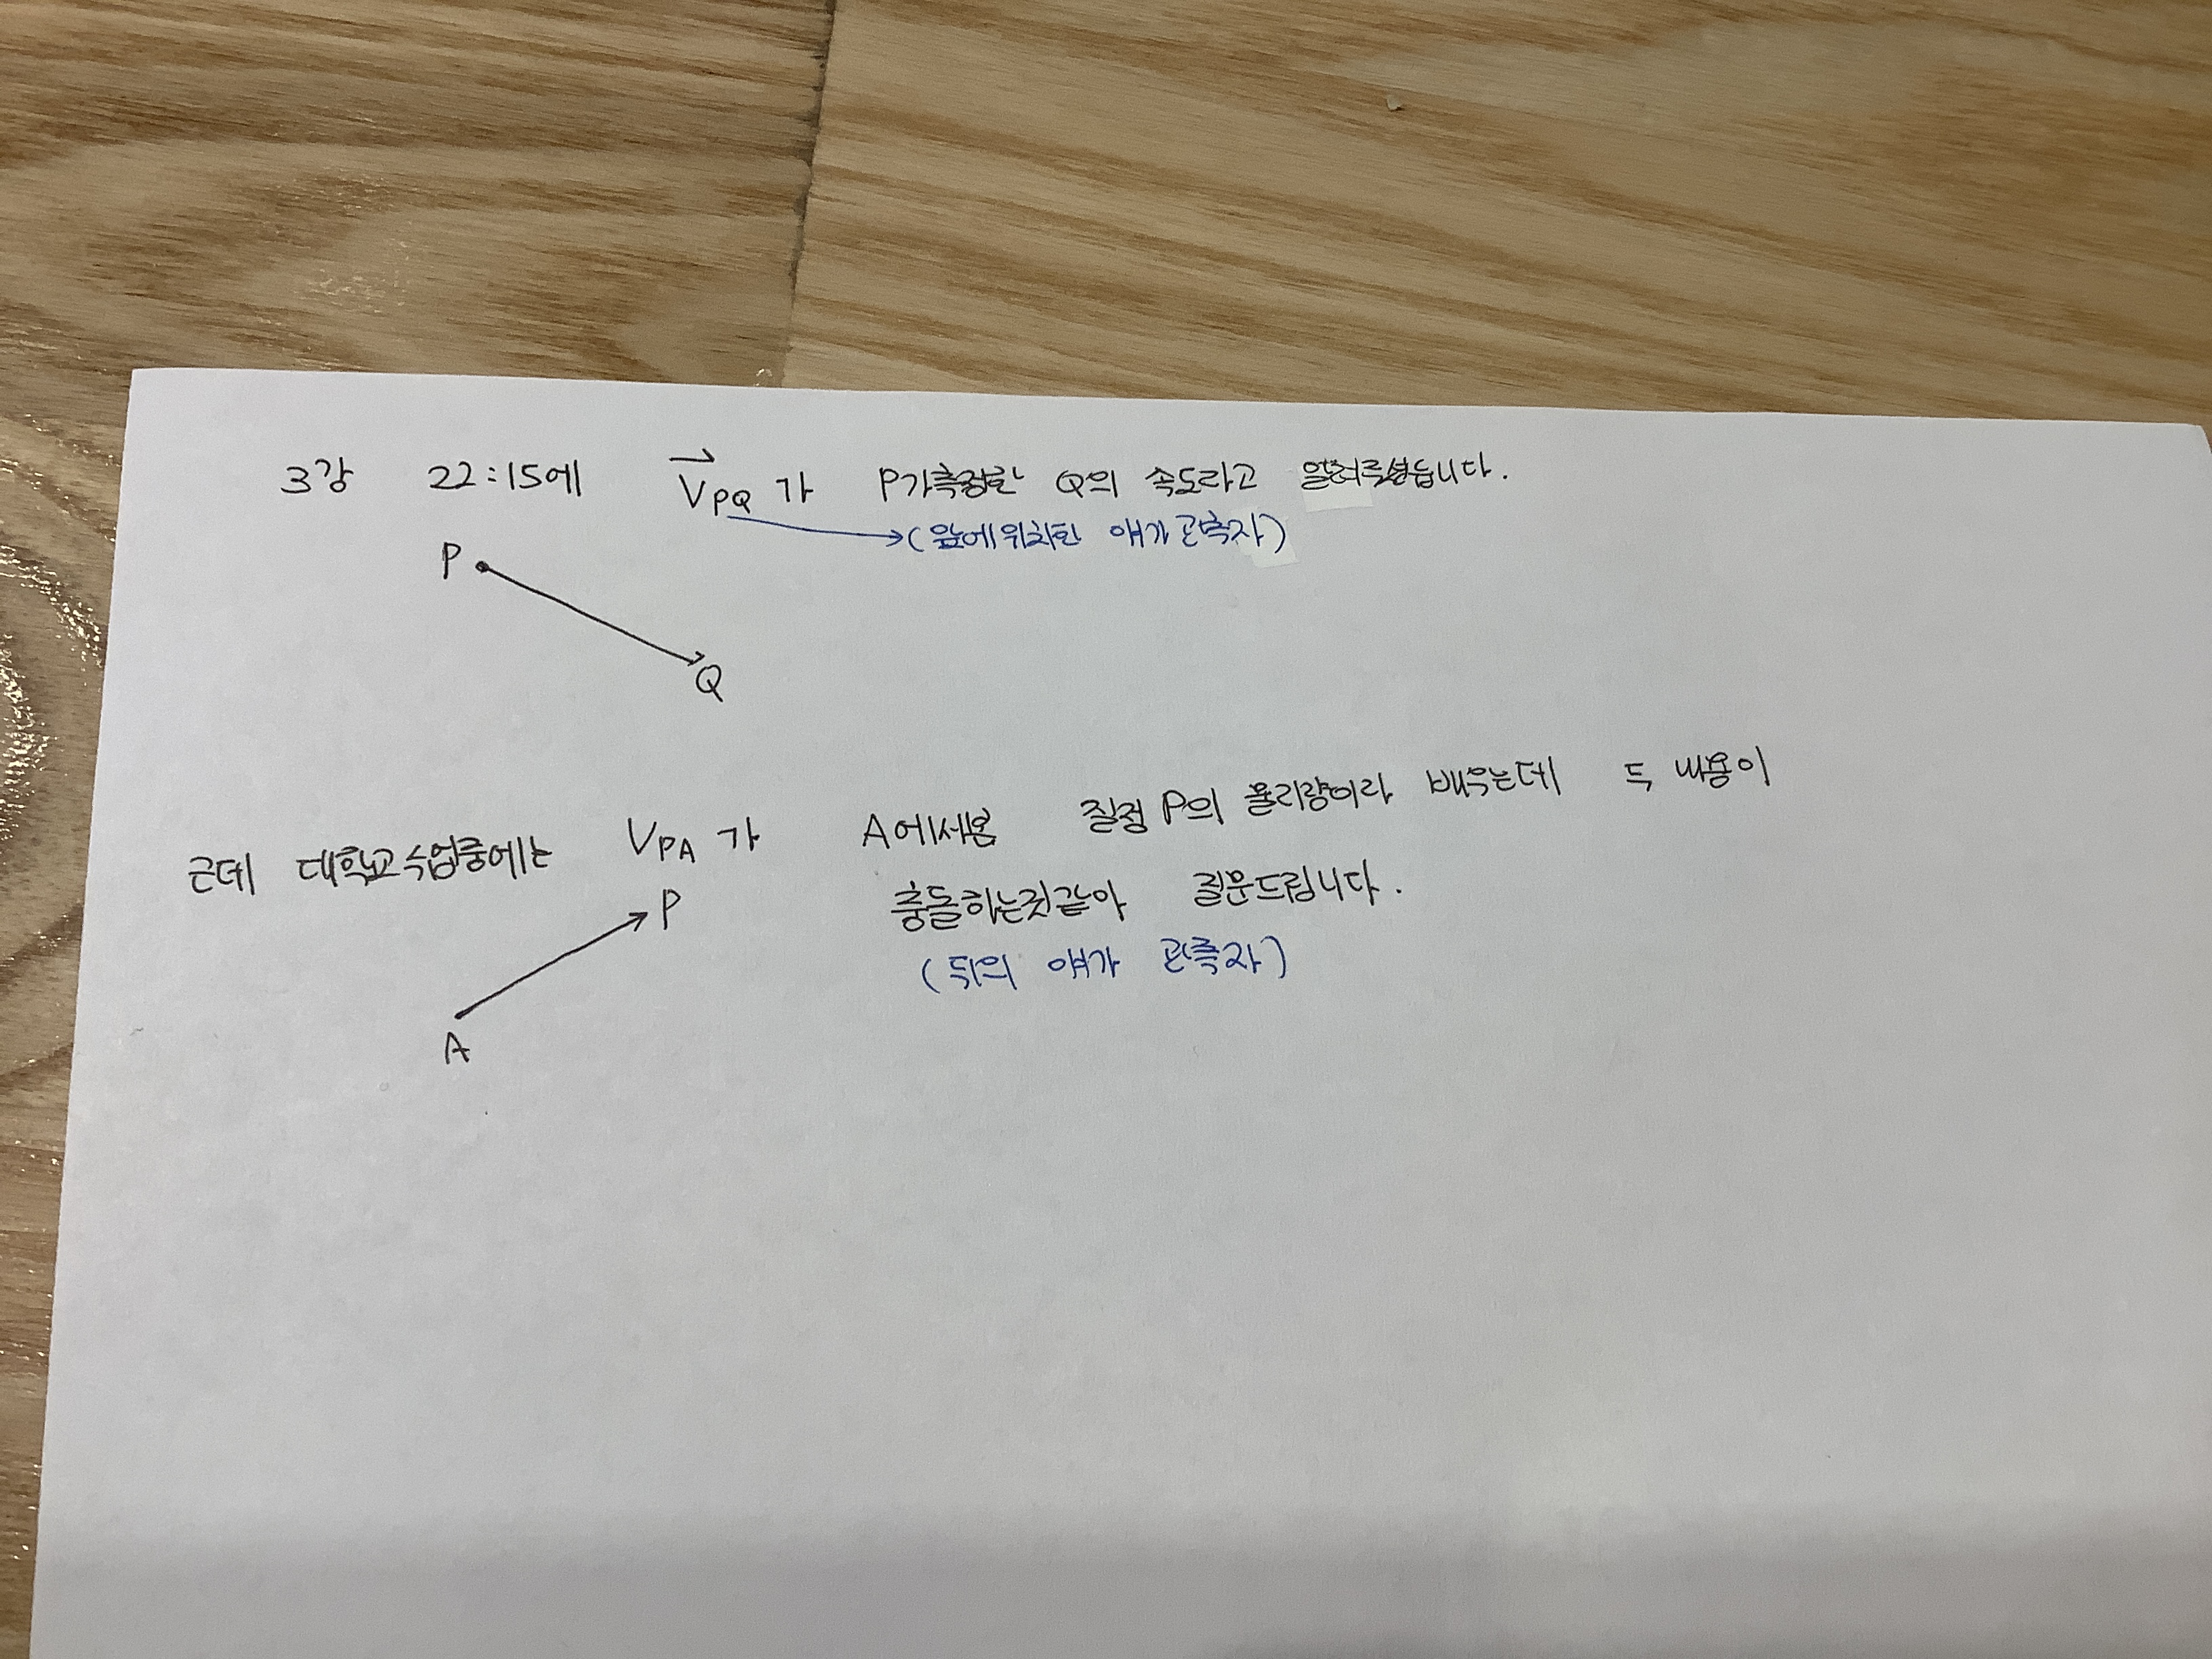 3강 22:15에 V_PQ가 P가측정한 Q의 속도라고 알려주셨습니다.
(앞에위치한 얘가 관측자)
P
Q
근데 대학교수업중에는 V_PA가 A에서본 질점 P의 물리량이라 배우는데 두 내용이
충돌하는것같아 질문드립니다.
P
(뒤의 얘가 관측자)
A